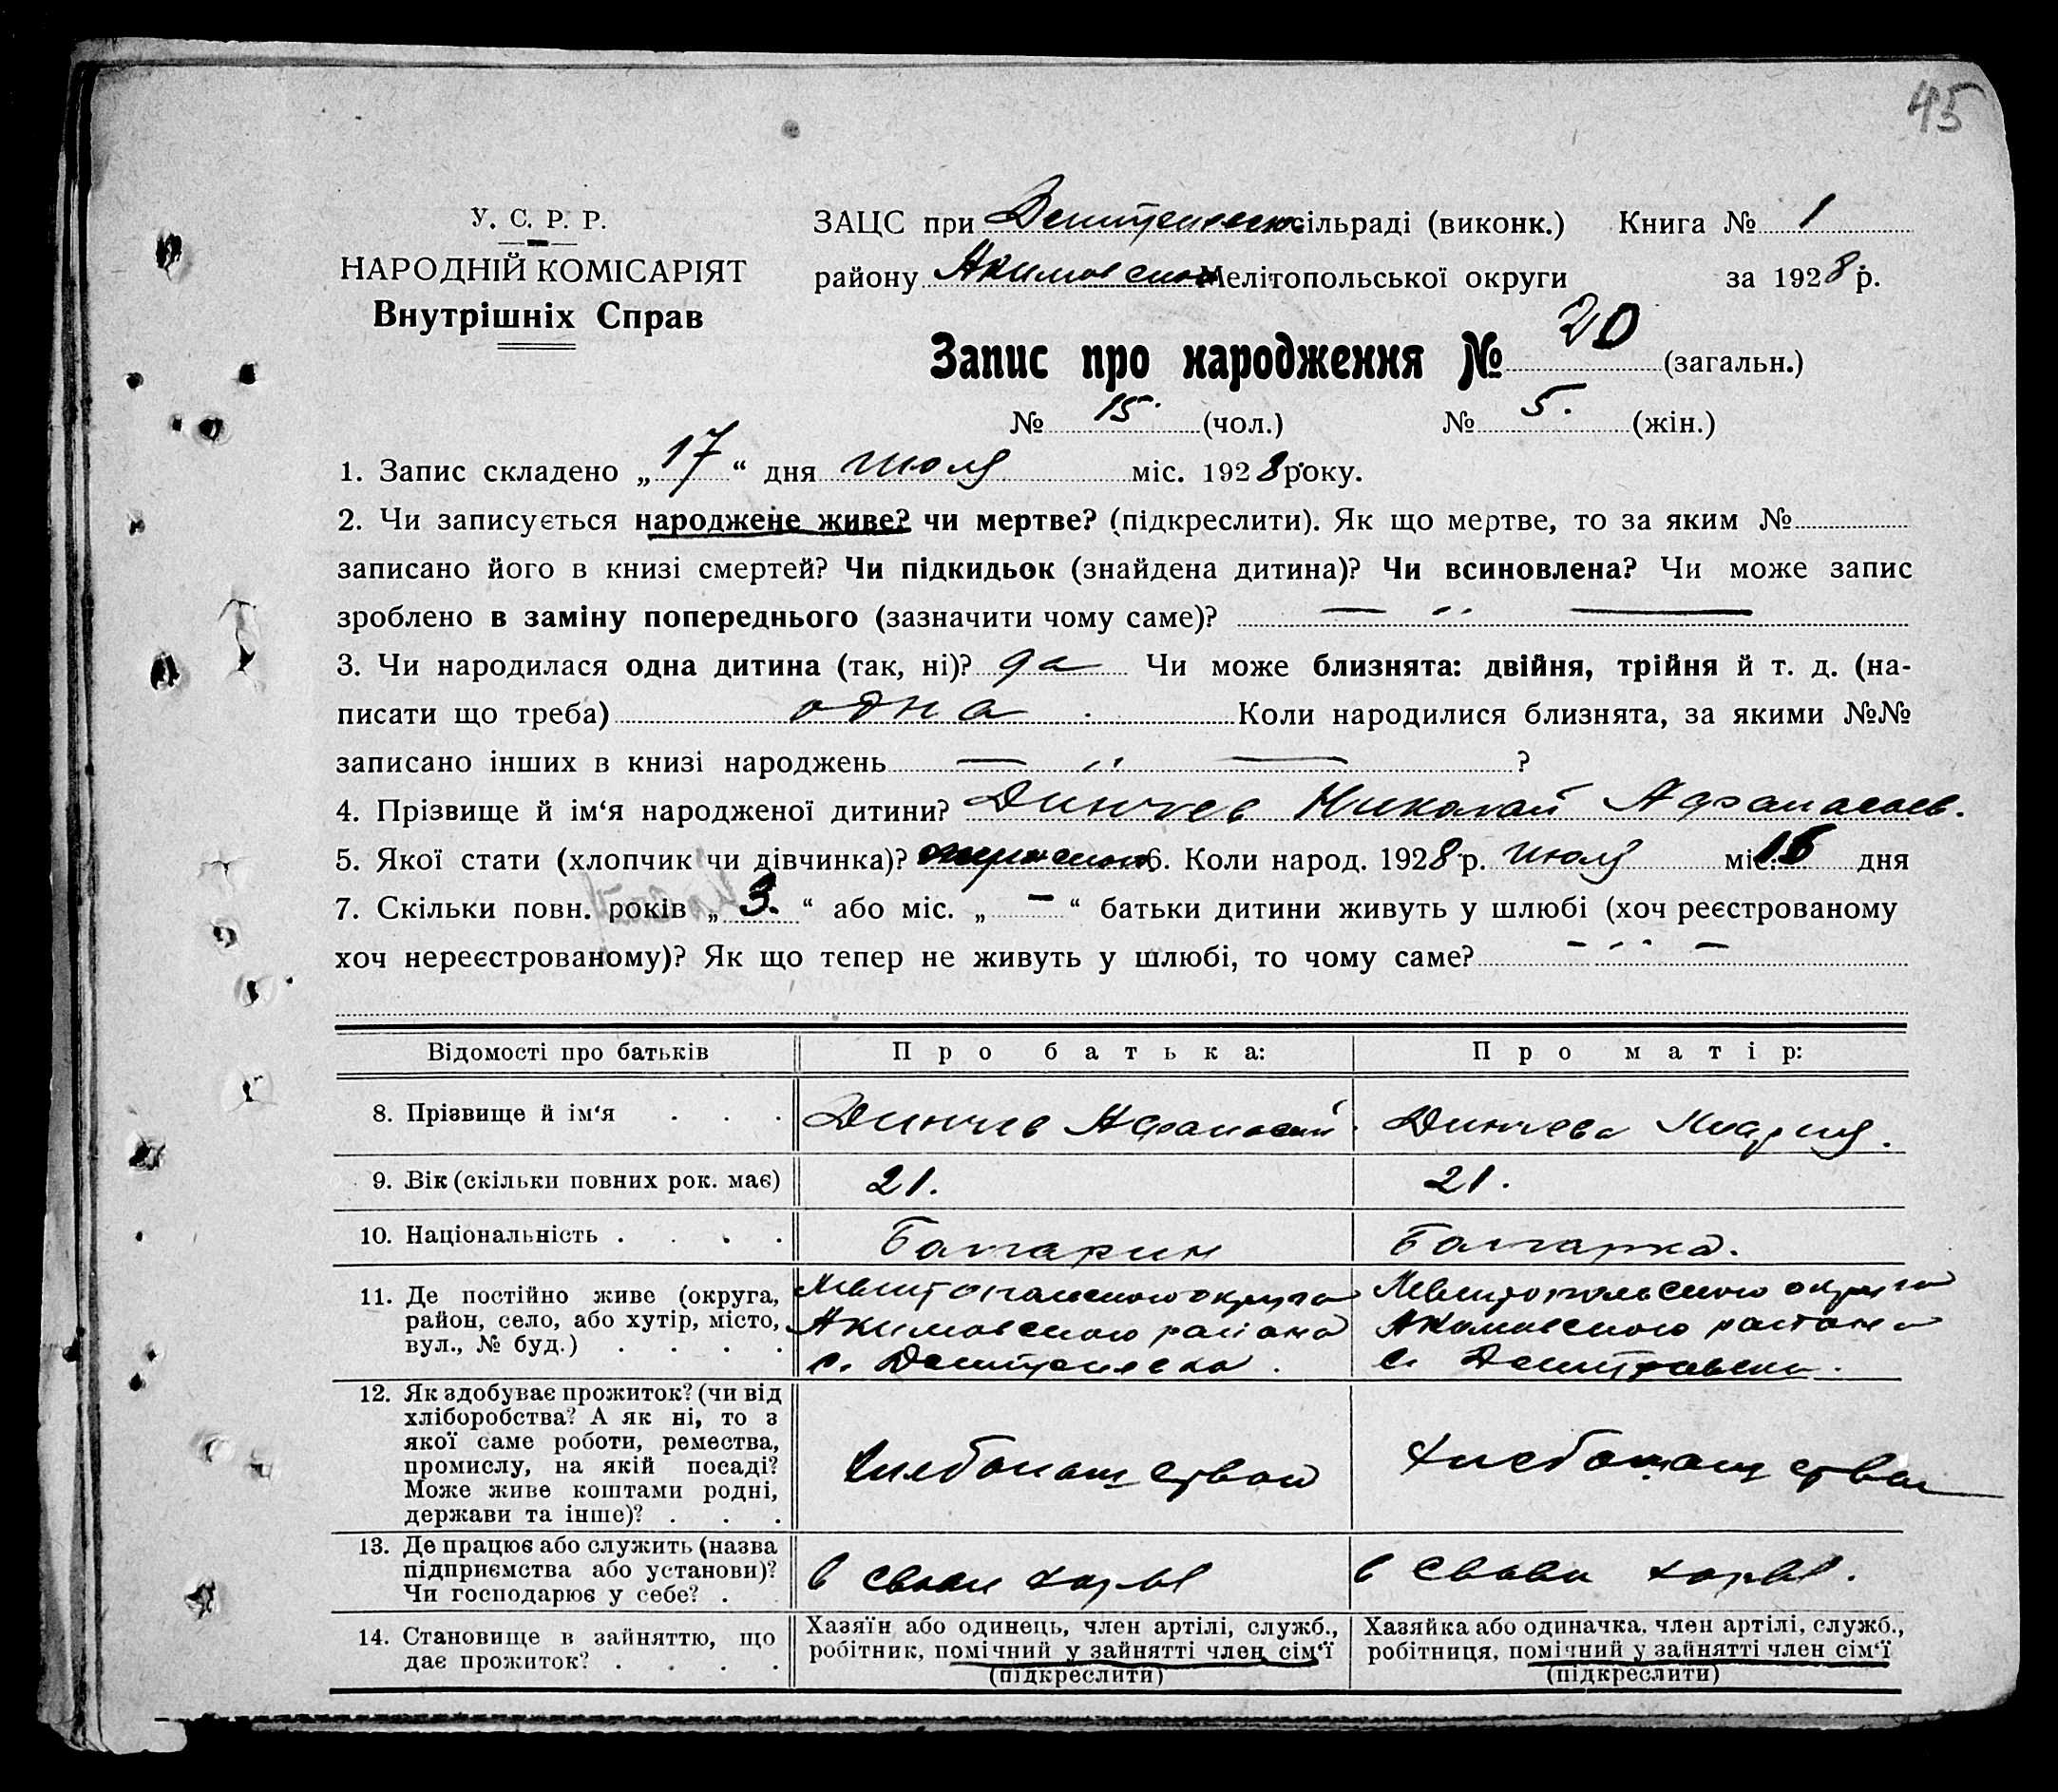 45
У. С. Р. Р.
НАРОДНІЙ КОМІСАРІЯТ
Внутрішніх Справ
ЗАЦС при сільраді (виконк.) Книга № 1
району Акимовского Мелітопольської округи за 1928 р.
Запис про народження № 20 (загальн.)
№ 15. (чол.) № 5. (жін.)
1. Запис складено „17“ дня июля міс. 1928 року.
2. Чи записується народжене живе? чи мертве? (підкреслити). Як що мертве, то за яким №
записано його в книзі смертей? Чи підкидьок (знайдена дитина)? Чи всиновлена? Чи може запис
зроблено в заміну попереднього (зазначити чому саме)? — „ —
3. Чи народилася одна дитина (так, ні)? да Чи може близнята: двійня, трійня й т. д. (на-
писати що треба) одна Коли народилися близнята, за якими №№
записано інших в книзі народжень — „ — ?
4. Прізвище й ім‘я народженої дитини? Динчев Николай Афанасьев.
5. Якої стати (хлопчик чи дівчинка)? 6. Коли народ. 1928 р. июля міс. 16 дня
7. Скільки повн. років „3.“ або міс. „—“ батьки дитини живуть у шлюбі (хоч реєстрованому
хоч нереєстрованому)? Як що тепер не живуть у шлюбі, то чому саме? — „ —
Відомості про батьків Про батька: Про матір:
8. Прізвище й ім‘я . . . Динчев Афанасий. Динчева Мария.
9. Вік (скільки повних рок. має) 21. 21.
10. Національність . . . . Болгарин Болгарка.
11. Де постійно живе (округа,
район, село, або хутір, місто,
вул., № буд.) . . . .
Мелитопольского округа
Акимовского района
с.
Мелитопольского округа
Акимовского района
с.
12. Як здобуває прожиток? (чи від
хліборобства? А як ні, то з
якої саме роботи, ремества,
промислу, на якій посаді?
Може живе коштами родні,
держави та інше)? . . .
Хлебопашеством
Хлебопашеством
13. Де працює або служить (назва
підприємства або установи)?
Чи господарює у себе? .
в своем
в своем
14. Становище в зайняттю, що
дає прожиток? . . . .
Хазяїн або одинець, член артілі, служб.,
робітник, помічний у зайнятті член сім‘ї
(підкреслити)
Хазяйка або одиначка. член артілі, служб.,
робітниця, помічний у зайнятті член сім‘ї
(підкреслити)